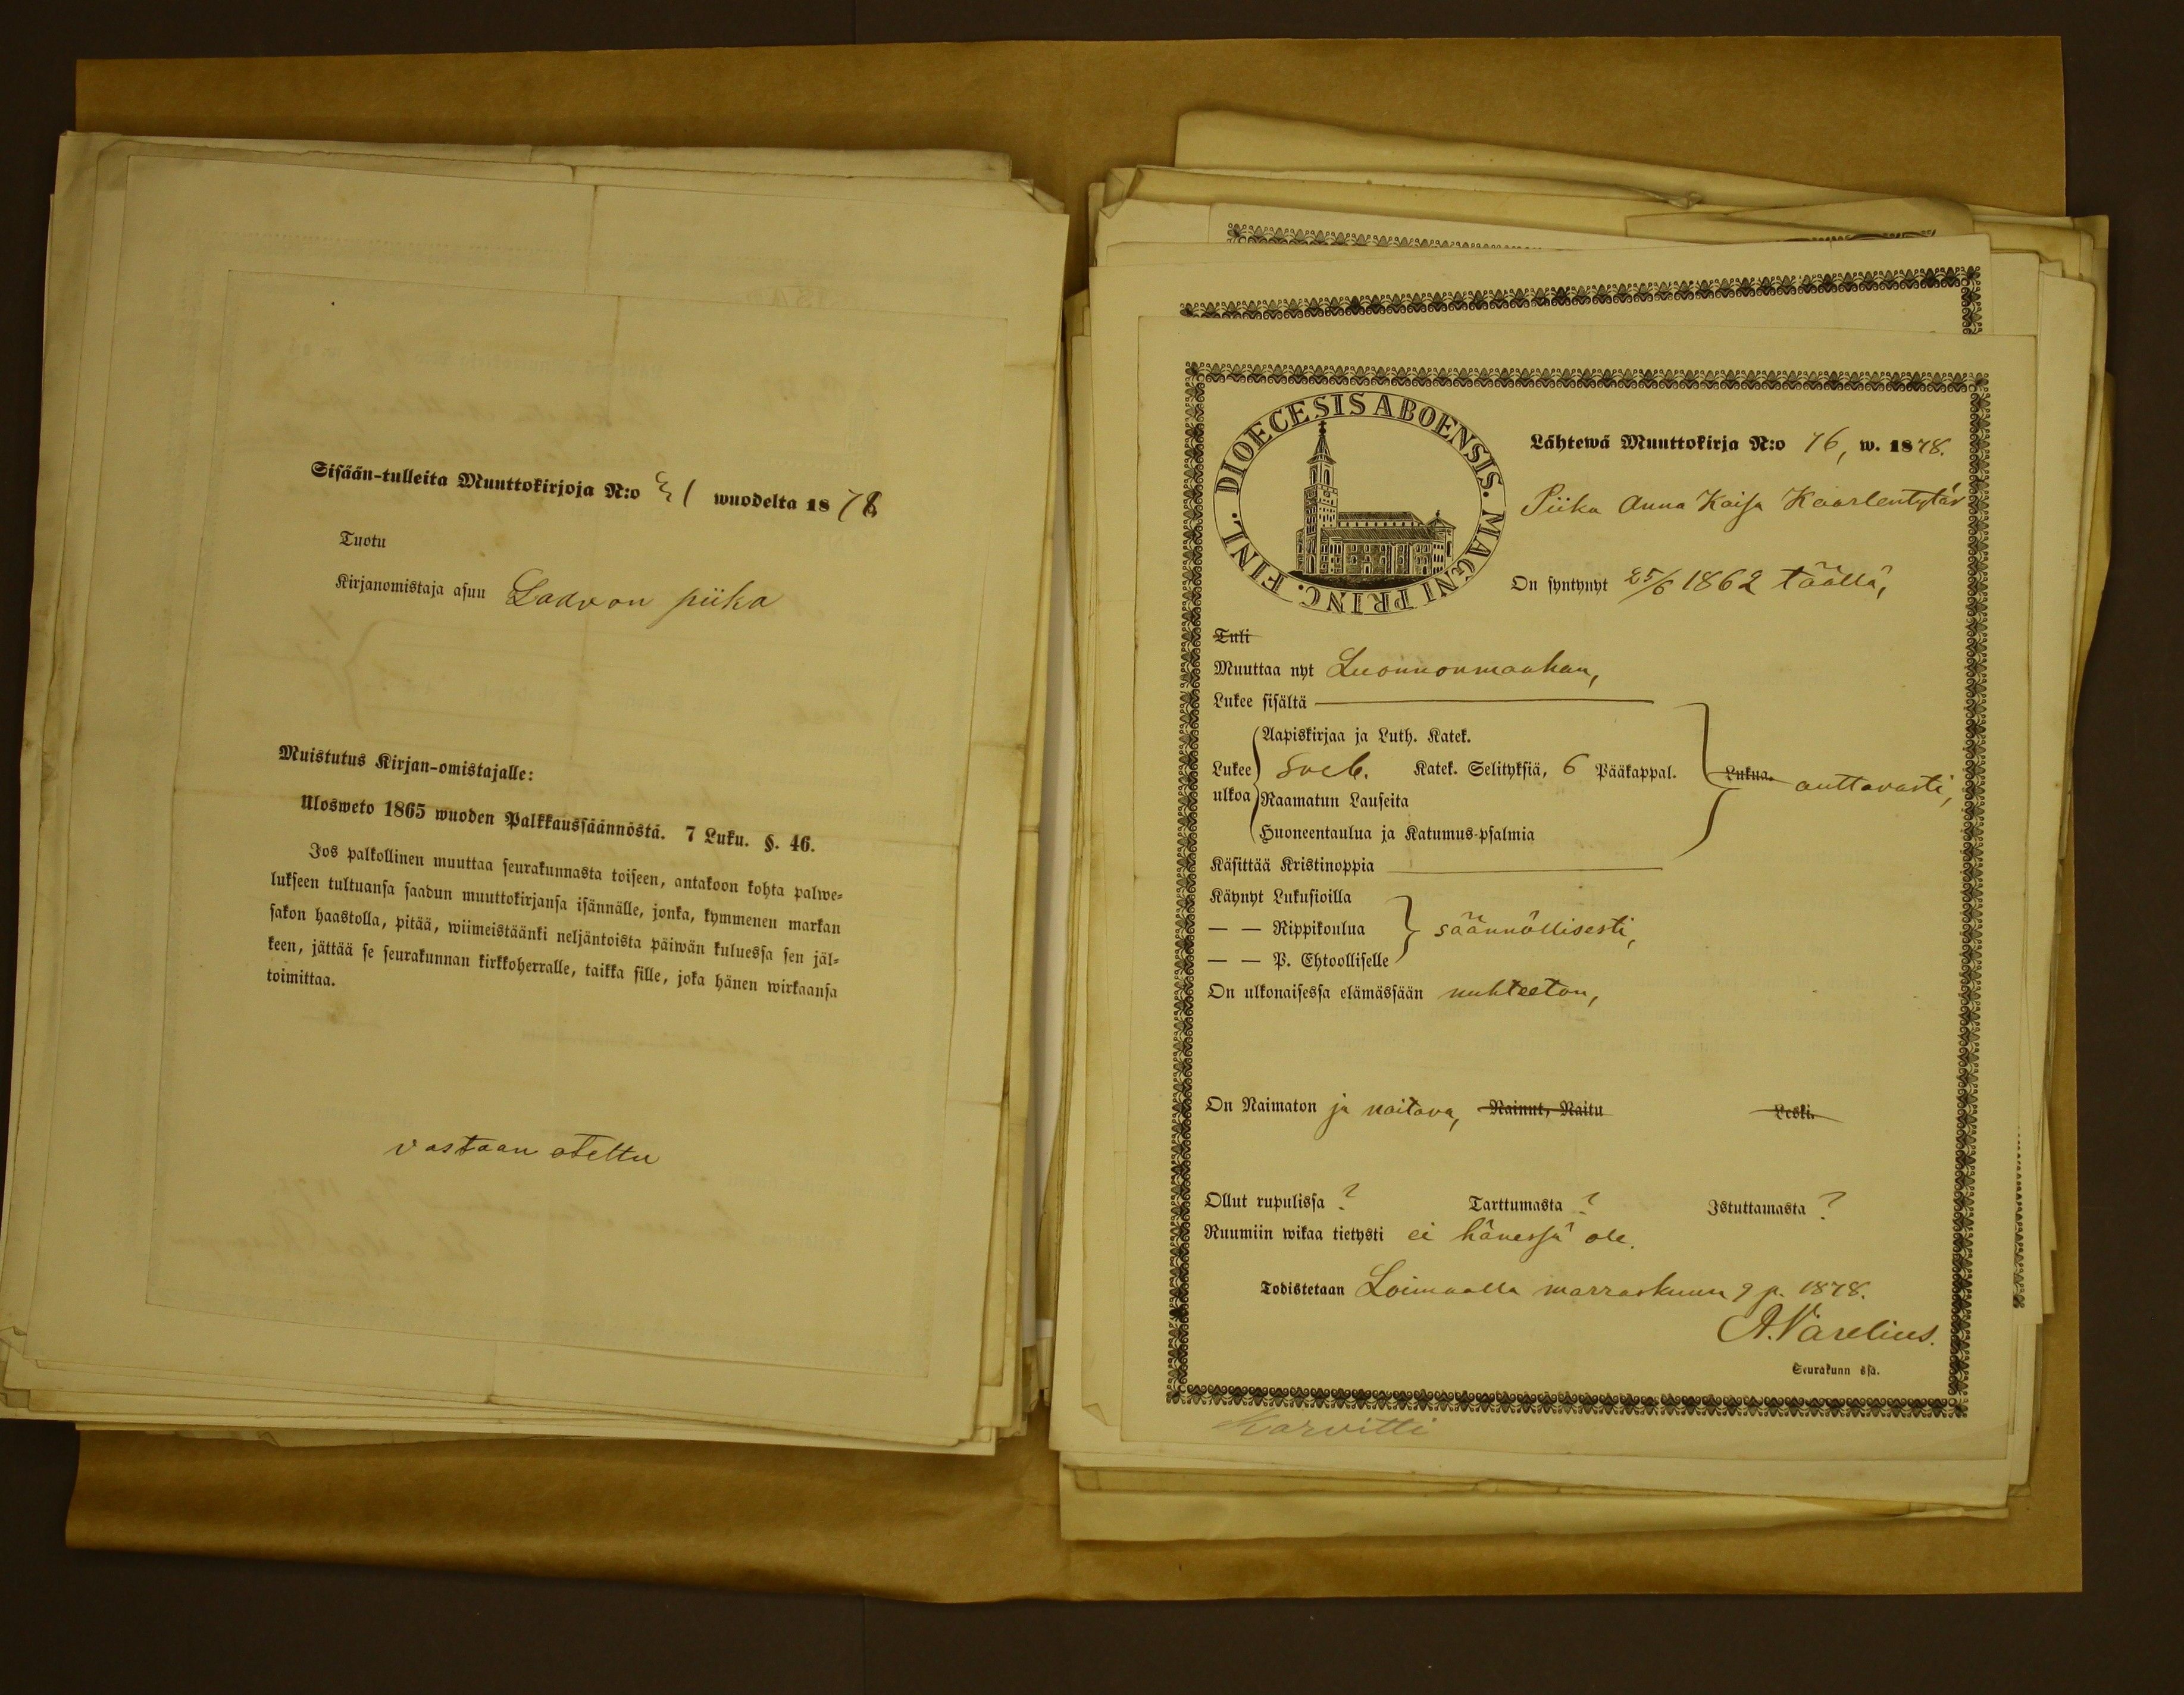 Sisään-tulleita Muuttokirjoja N:o 31 wuodelta 1878
Tuotu
Kirjanomistaja asuu piika
Muistutus Kirjan-omistajalle:
Ulosweto 1865 wuoden Palkkaussäännöstä. 7 Luku. §. 46.
Jos palkollinen muuttaa seurakunnasta toiseen, antakoon kohta palwe-
lukseen tultuansa saadun muuttokirjansa isännälle, jonka, kymmenen markan
sakon haastolla, pitää, wiimeistäänki neljäntoista päiwän kuluessa sen jäl-
keen, jättää se seurakunnan kirkkoherralle, taikka sille, joka hänen wirkaansa
toimittaa.
vastaan otettu
DIOECESIS ABOENSIS. MAGNI PRINC. FINL.
Lähtewä Muuttokirja N:o 76, w. 1878.
Piika Anna Kaisa Kaarlentytär
On syntynyt 25/6 1862 täällä,
Tuli
Muuttaa nyt Luonnonmaahan,
Lukee sisältä
Lukee ulkoa
Aapiskirjaa ja Luth. Katek.
Sveb. Katek. Selityksiä, 6 Pääkappal.
Raamatun Lauseita
Huoneentaulua ja Katumus-psalmia
Lukua. auttavasti,
Käsittää Kristinoppia
Käynyt Lukusioilla
— — Rippikoulua säännöllisesti,
— — P. Ehtoolliselle
On ulkonaisessa elämässään nuhteeton,
On Naimaton ja naitava, Nainut, Naitu Leski.
Ollut rupulissa ? Tarttumasta ? Istuttamasta ?
Ruumiin wikaa tietysti ei hänessä ole.
Todistetaan Loimaalla marraskuun 9 p. 1878.
A. Varelius.
Seurakunn ssa.
Karvitti